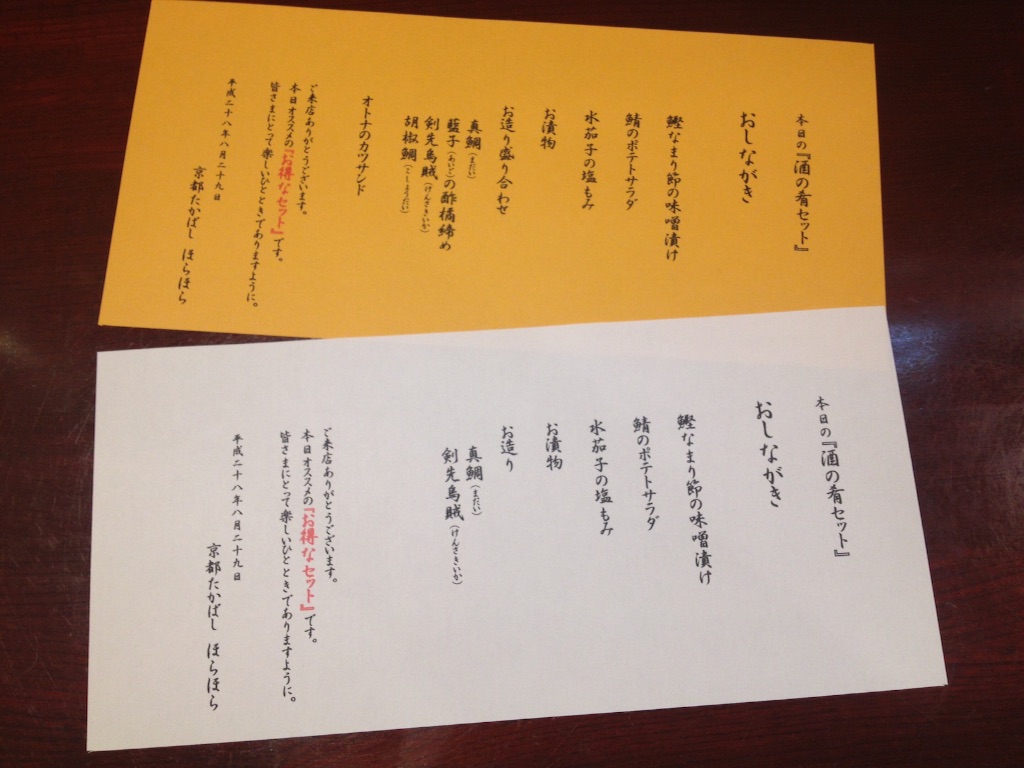 本日の『酒の肴セット』
おしながき
鰹なまり節の味噌漬け
鯖のポテトサラダ
水茄子の塩もみ
お漬物
お造り盛り合わせ
真鯛(まだい)
藍子(あいご)の酢橘締め
剣先烏賊(けんさきいか)
胡椒鯛(こしょうだい)
オトナのカツサンド
ご来店ありがとうございます。
本日オススメの『お得なセット』です。
皆さまにとって楽しいひとときでありますように。
平成二十八年八月二十九日
京都たかばし ほらほら
本日の『酒の肴セット』
おしながき
鰹なまり節の味噌漬け
鯖のポテトサラダ
水茄子の塩もみ
お漬物
お造り
真鯛(まだい)
剣先烏賊(けんさきいか)
ご来店ありがとうございます。
本日オススメの『お得なセット』です。
皆さまにとって楽しいひとときでありますように。
平成二十八年八月二十九日
京都たかばし ほらほら